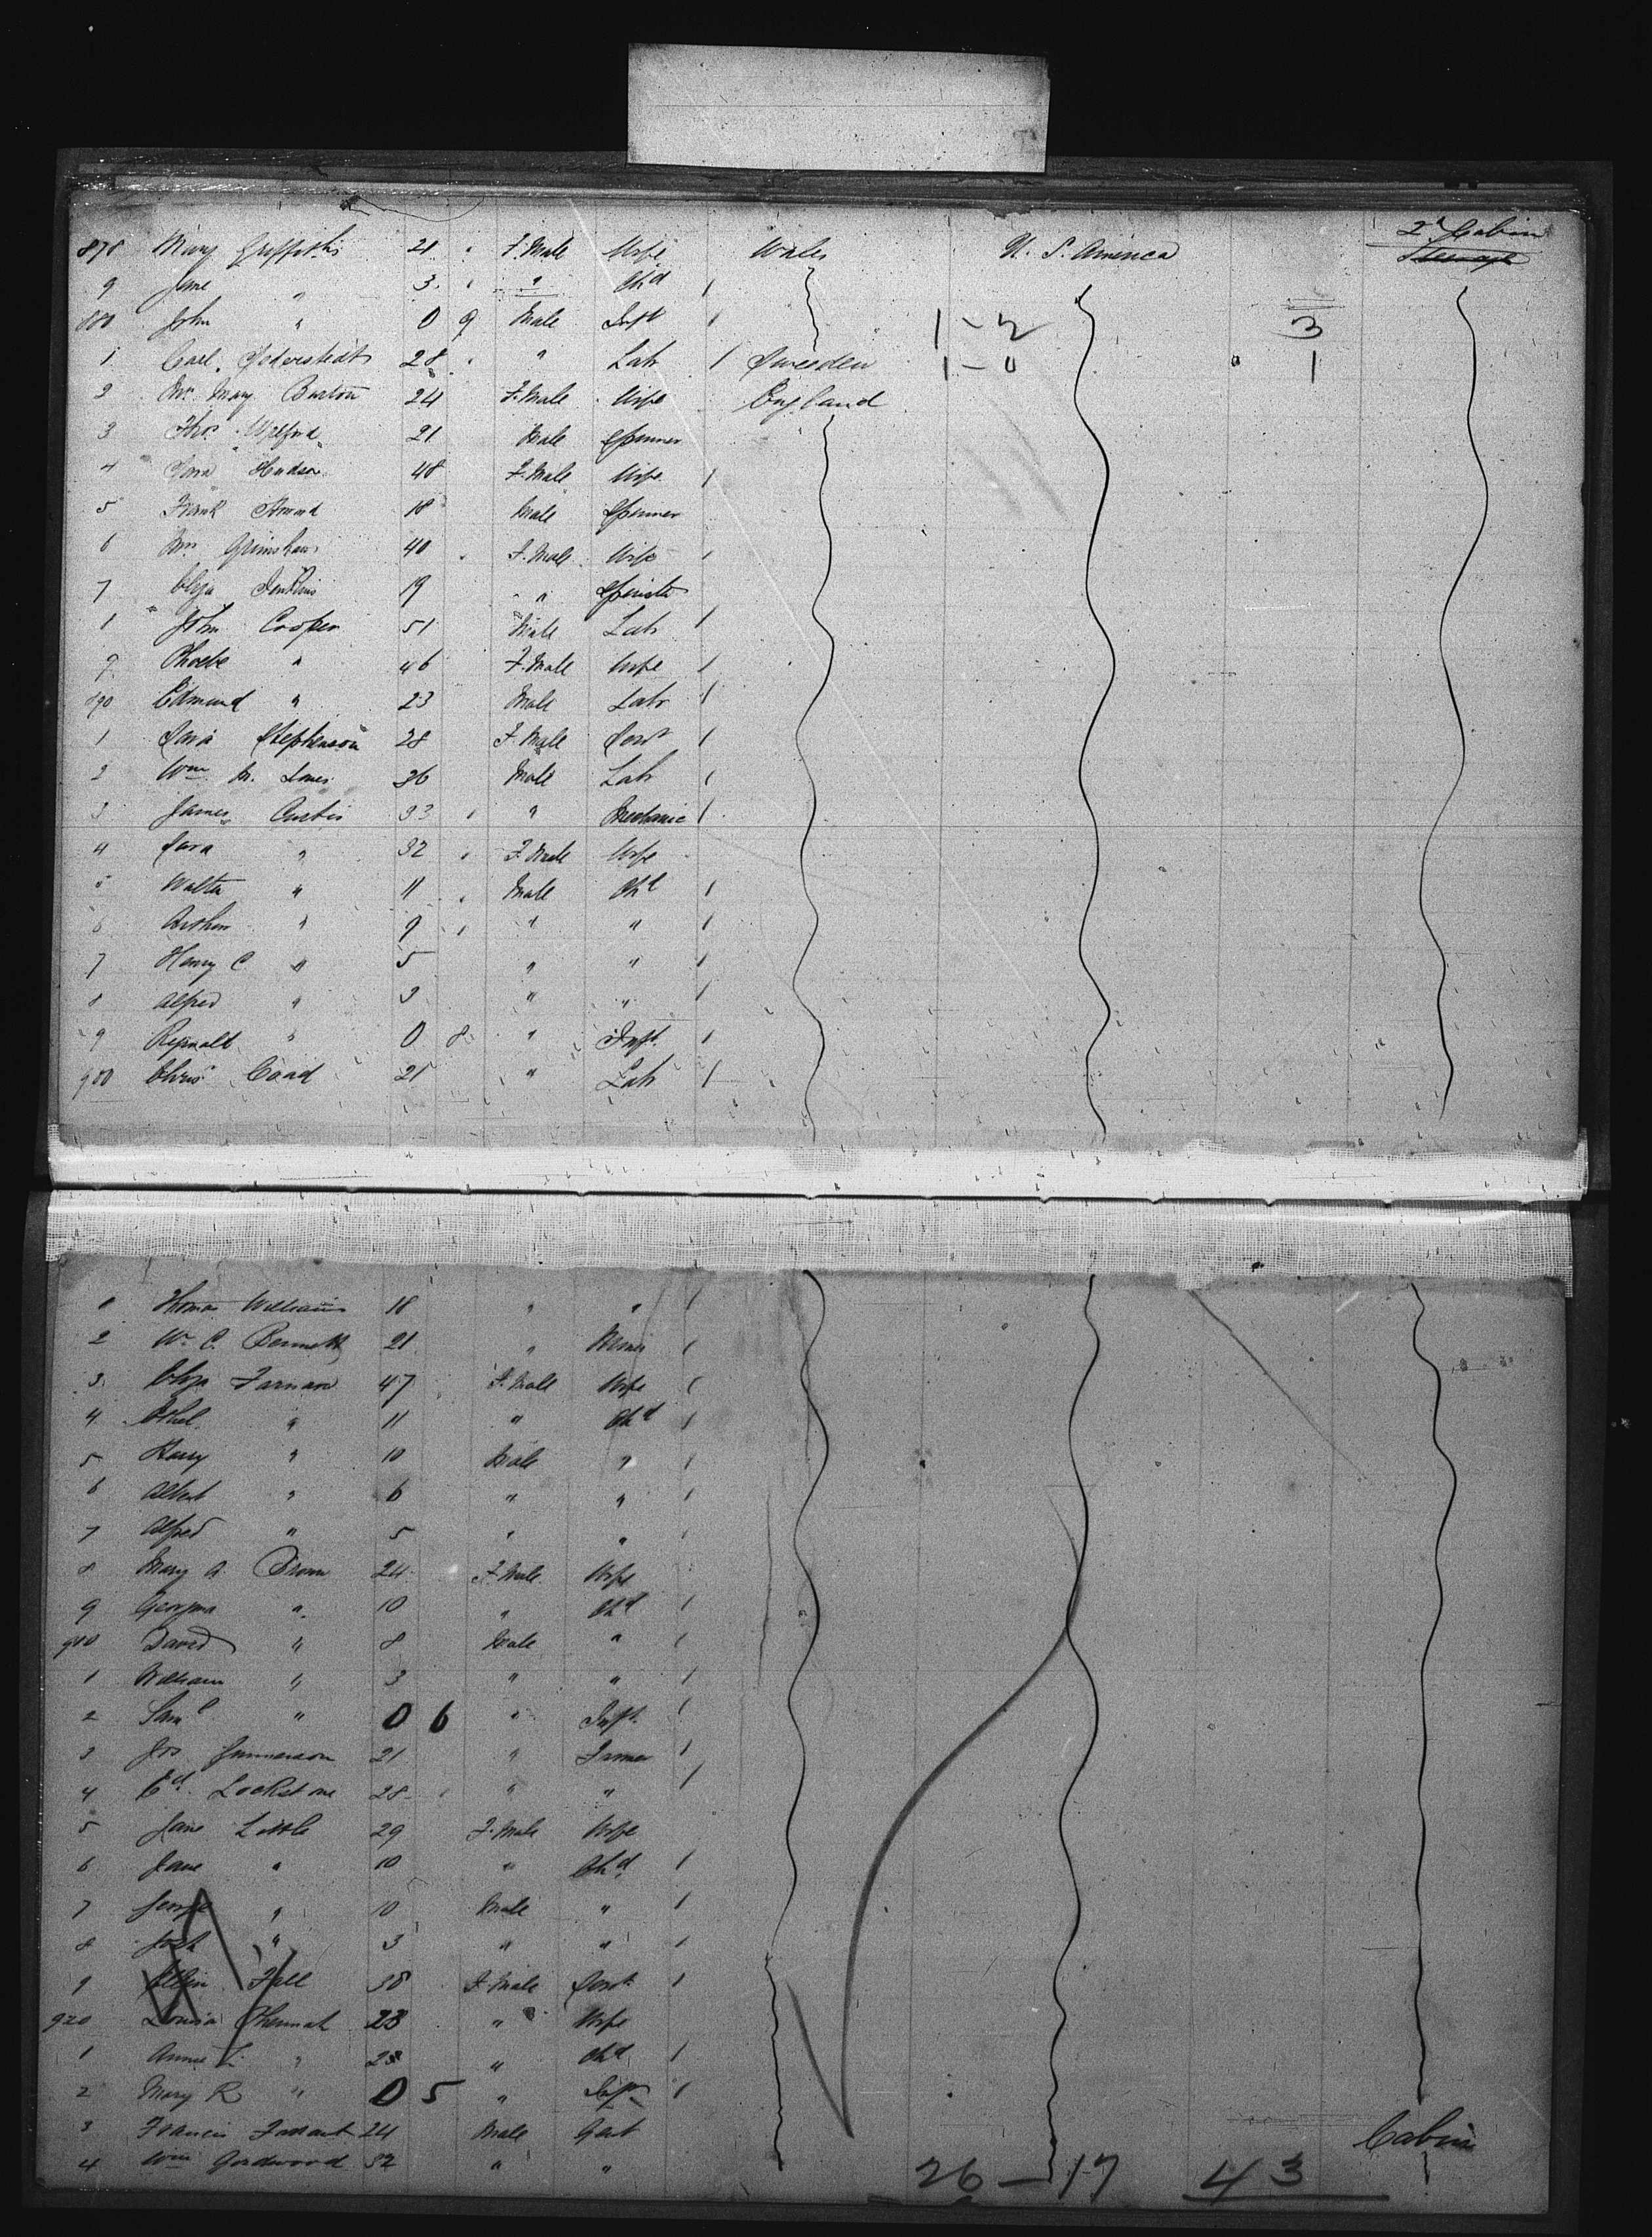 2d Cabin
878 Mary Griffiths 21 F.Male Wife Wales U. S. America Steerage
9 Jane " 3 " Chd 1
880 John " 0 9 Male Inft 1 1-2 3
1 Carl Sederstedt 28 " Labr 1 Sweeden 1-0 1
2 Mrs Mary Burton 24 F.Male Wife England
3 Thos 21 Male
4 Sara Hudson 48 F.Male Wife 1
5 Frank 18 Male
6 Mrs Grimshaw 40 F.Male Wife 1
7 Eliza Jenkins 19 " Spinster
John Cooper 51 Male Labr 1
9 Phoebe " 46 F.Male Wife 1
890 Edmund " 23 Male Labr 1
1 Sara Stephenson 28 F.Male Servt 1
2 Wm M. Jones 36 Male Labr 1
3 James Curtis 33 " Mechanic 1
4 Sara " 32 F.Male Wife
5 Walter " 11 Male Chd 1
6 Arthur " 9 " " 1
7 Henry C " 5 " " 1
8 Alfred " 3 " " 1
9 Reginald " 0 8 " Inft 1
900 Chris Coad 21 " Labr 1
1 Thomas Williams 18 " " 1
2 Wm C. Bennett 21 " Miner 1
3 Eliza Farnan 47 F.Male Wife 1
4 Ethel " 11 " Chd 1
5 Harry " 10 Male " 1
6 Albert " 6 " " 1
7 Alfred " 5 " " 1
8 Mary A. Brown 24 F.Male Wife
9 Georgina " 10 " Chd 1
910 David " 8 Male " 1
1 William " 3 " " 1
2 Saml " 0 6 " Inft 1
3 Jos 21 " Farmer 1
4 Ed. Lockstone 28 " " 1
5 Jane Little 29 F.Male Wife
6 Jane " 10 " Chd 1
7 George " 10 Male " 1
8 " 3 " " 1
9 Ellen 38 F.Male Servt 1
920 Louisa 23 " Wife
1 Annie L. " " Chd 1
2 Mary R " 0 5 " Inft 1
3 Francis Farrant 24 Male Gent Cabin
4 Wm Gordwood 32 " "
26 - 17 43